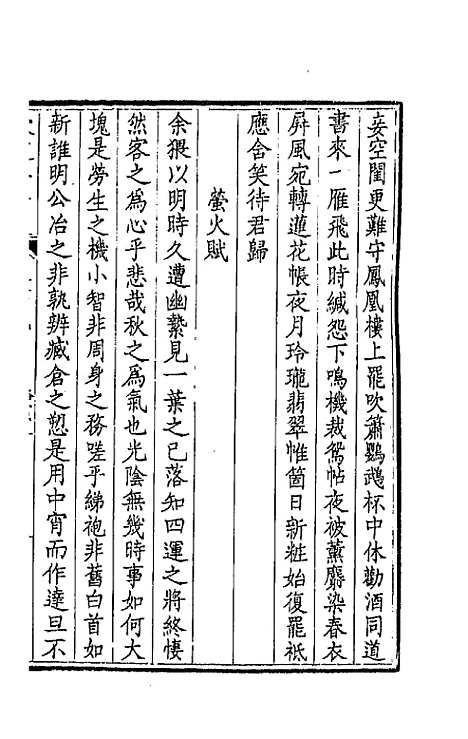 妾空閨更難守鳳凰樓上罷吹簫鸚鵡杯中休勸酒同道
書來一雁飛此時緘怨下鳴機裁鴛帖夜被薰麝染春衣
屏風宛轉蓮花帳夜月玲瓏翡翠帷箇日新粧始復罷祗
應含笑待君歸
螢火賦
余猥以明時久遭幽縶見一葉之已落知四運之將終悽
然客之為心乎悲哉秋之為氣也光陰無幾時事如何大
塊是勞生之機小智非周身之務嗟乎綈袍非舊白首如
新誰明公冶之非孰辨臧倉之愬是用中宵而作達旦不